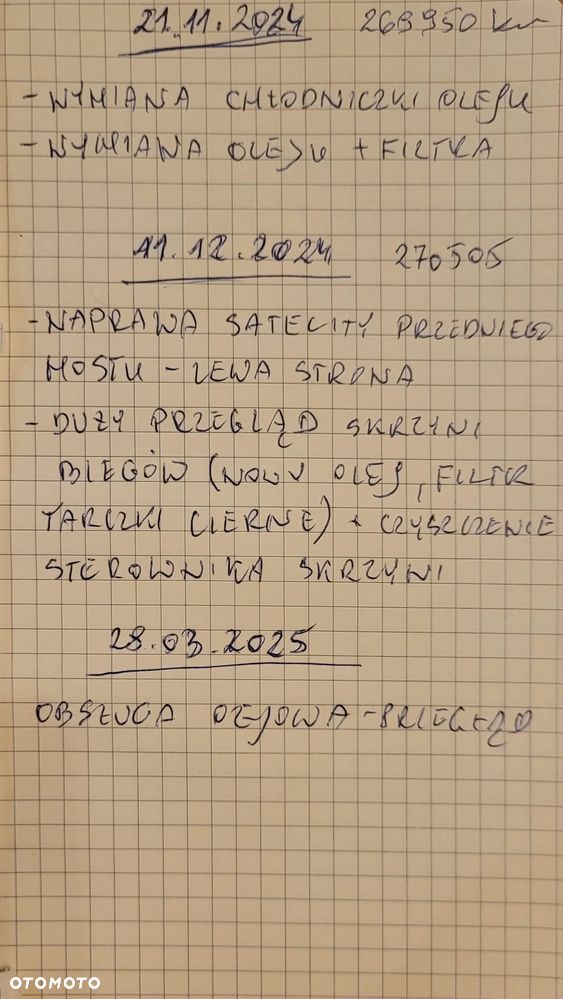 21.11.2024 269950 km
- WYMIANA CHŁODNICZKI OLEJU
- WYMIANA OLEJU + FILTRA
11.12.2024 270505
- NAPRAWA SATELITY PRZEDNIEGO
MOSTU - LEWA STRONA
- DUŻY PRZEGLĄD SKRZYNI
BIEGÓW (NOWY OLEJ, FILTR
TARCZKI CIERNE) + CZYSZCZENIE
STEROWNIKA SKRZYNI
28.03.2025
OBSŁUGA OLEJOWA - PRZEGLĄD
OTOMOTO